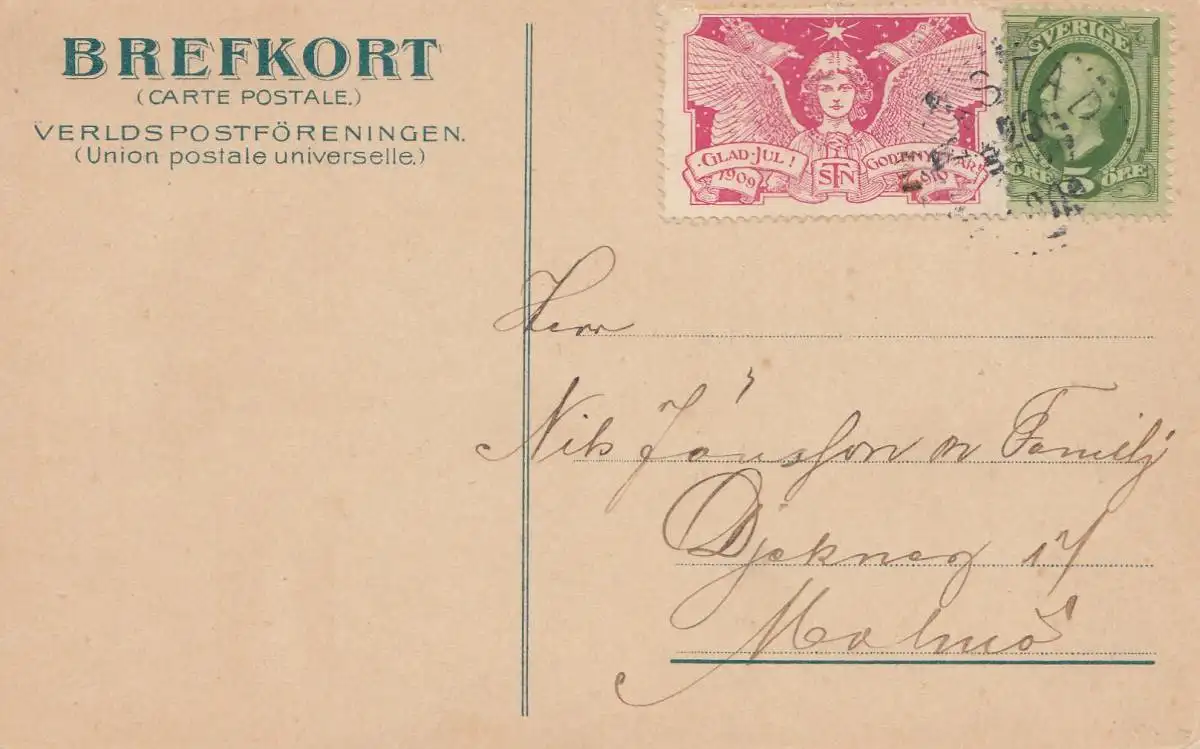 BREFKORT
(CARTE POSTALE.)
VERLDSPOSTFÖRENINGEN.
(Union postale universelle.)
GLAD JUL!
1909
STN
GODT NYTT ÅR!
SVERIGE
5
ÖRE ÖRE
Herr
Nils Jönsson m Familj
Djekneg 17
Malmö